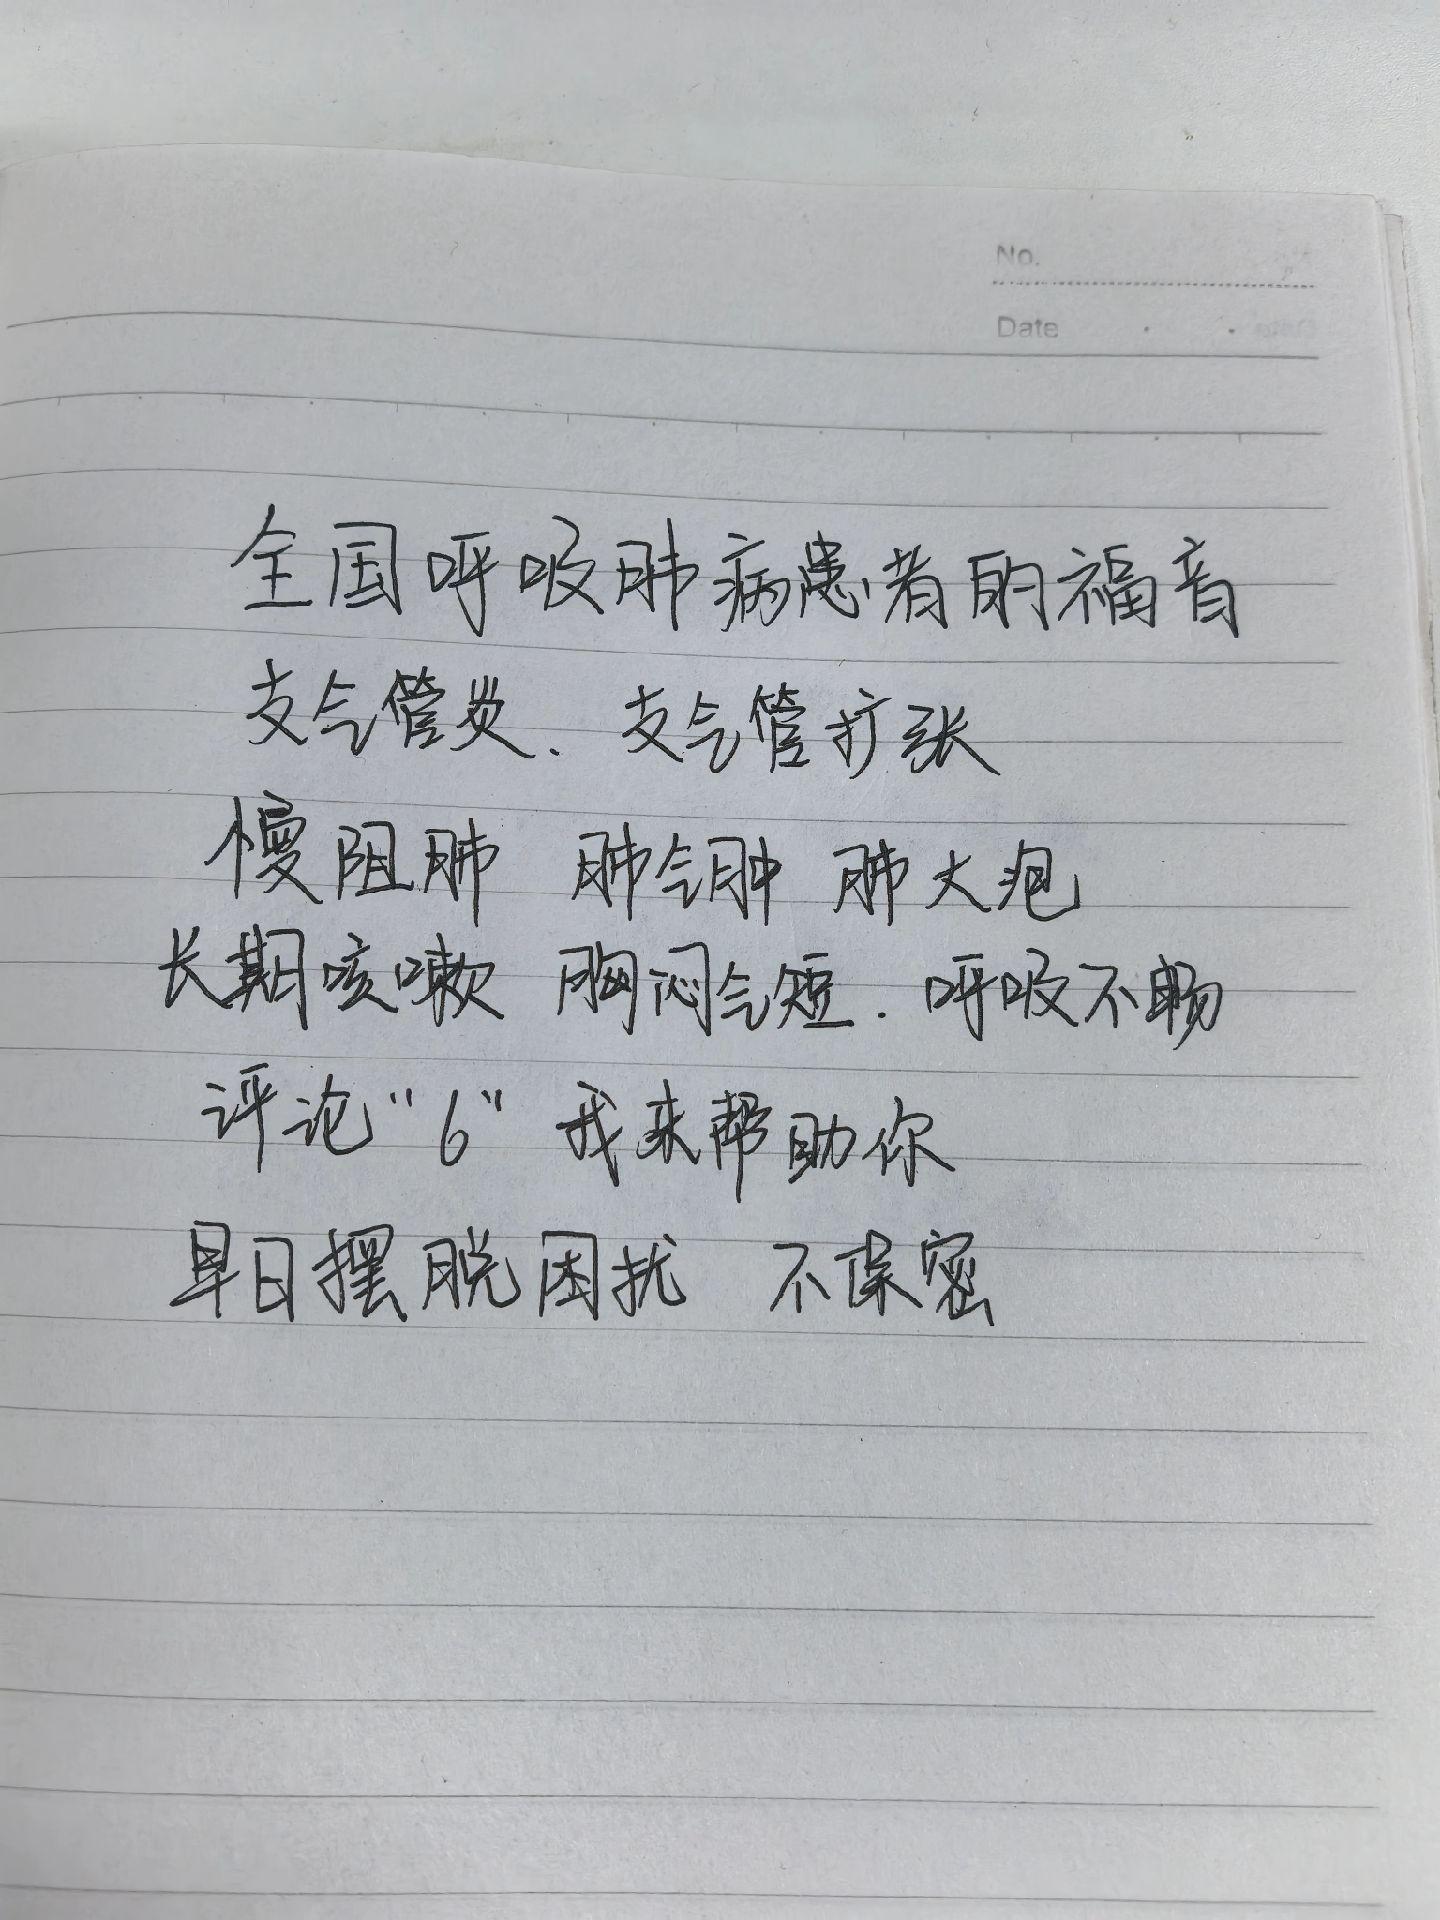 No.
Date
全国呼吸肺病患者的福音
支气管炎、支气管扩张
慢阻肺 肺气肿 肺大疱
长期咳嗽 胸闷气短、呼吸不畅
评论"6" 我来帮助你
早日摆脱困扰 不保密